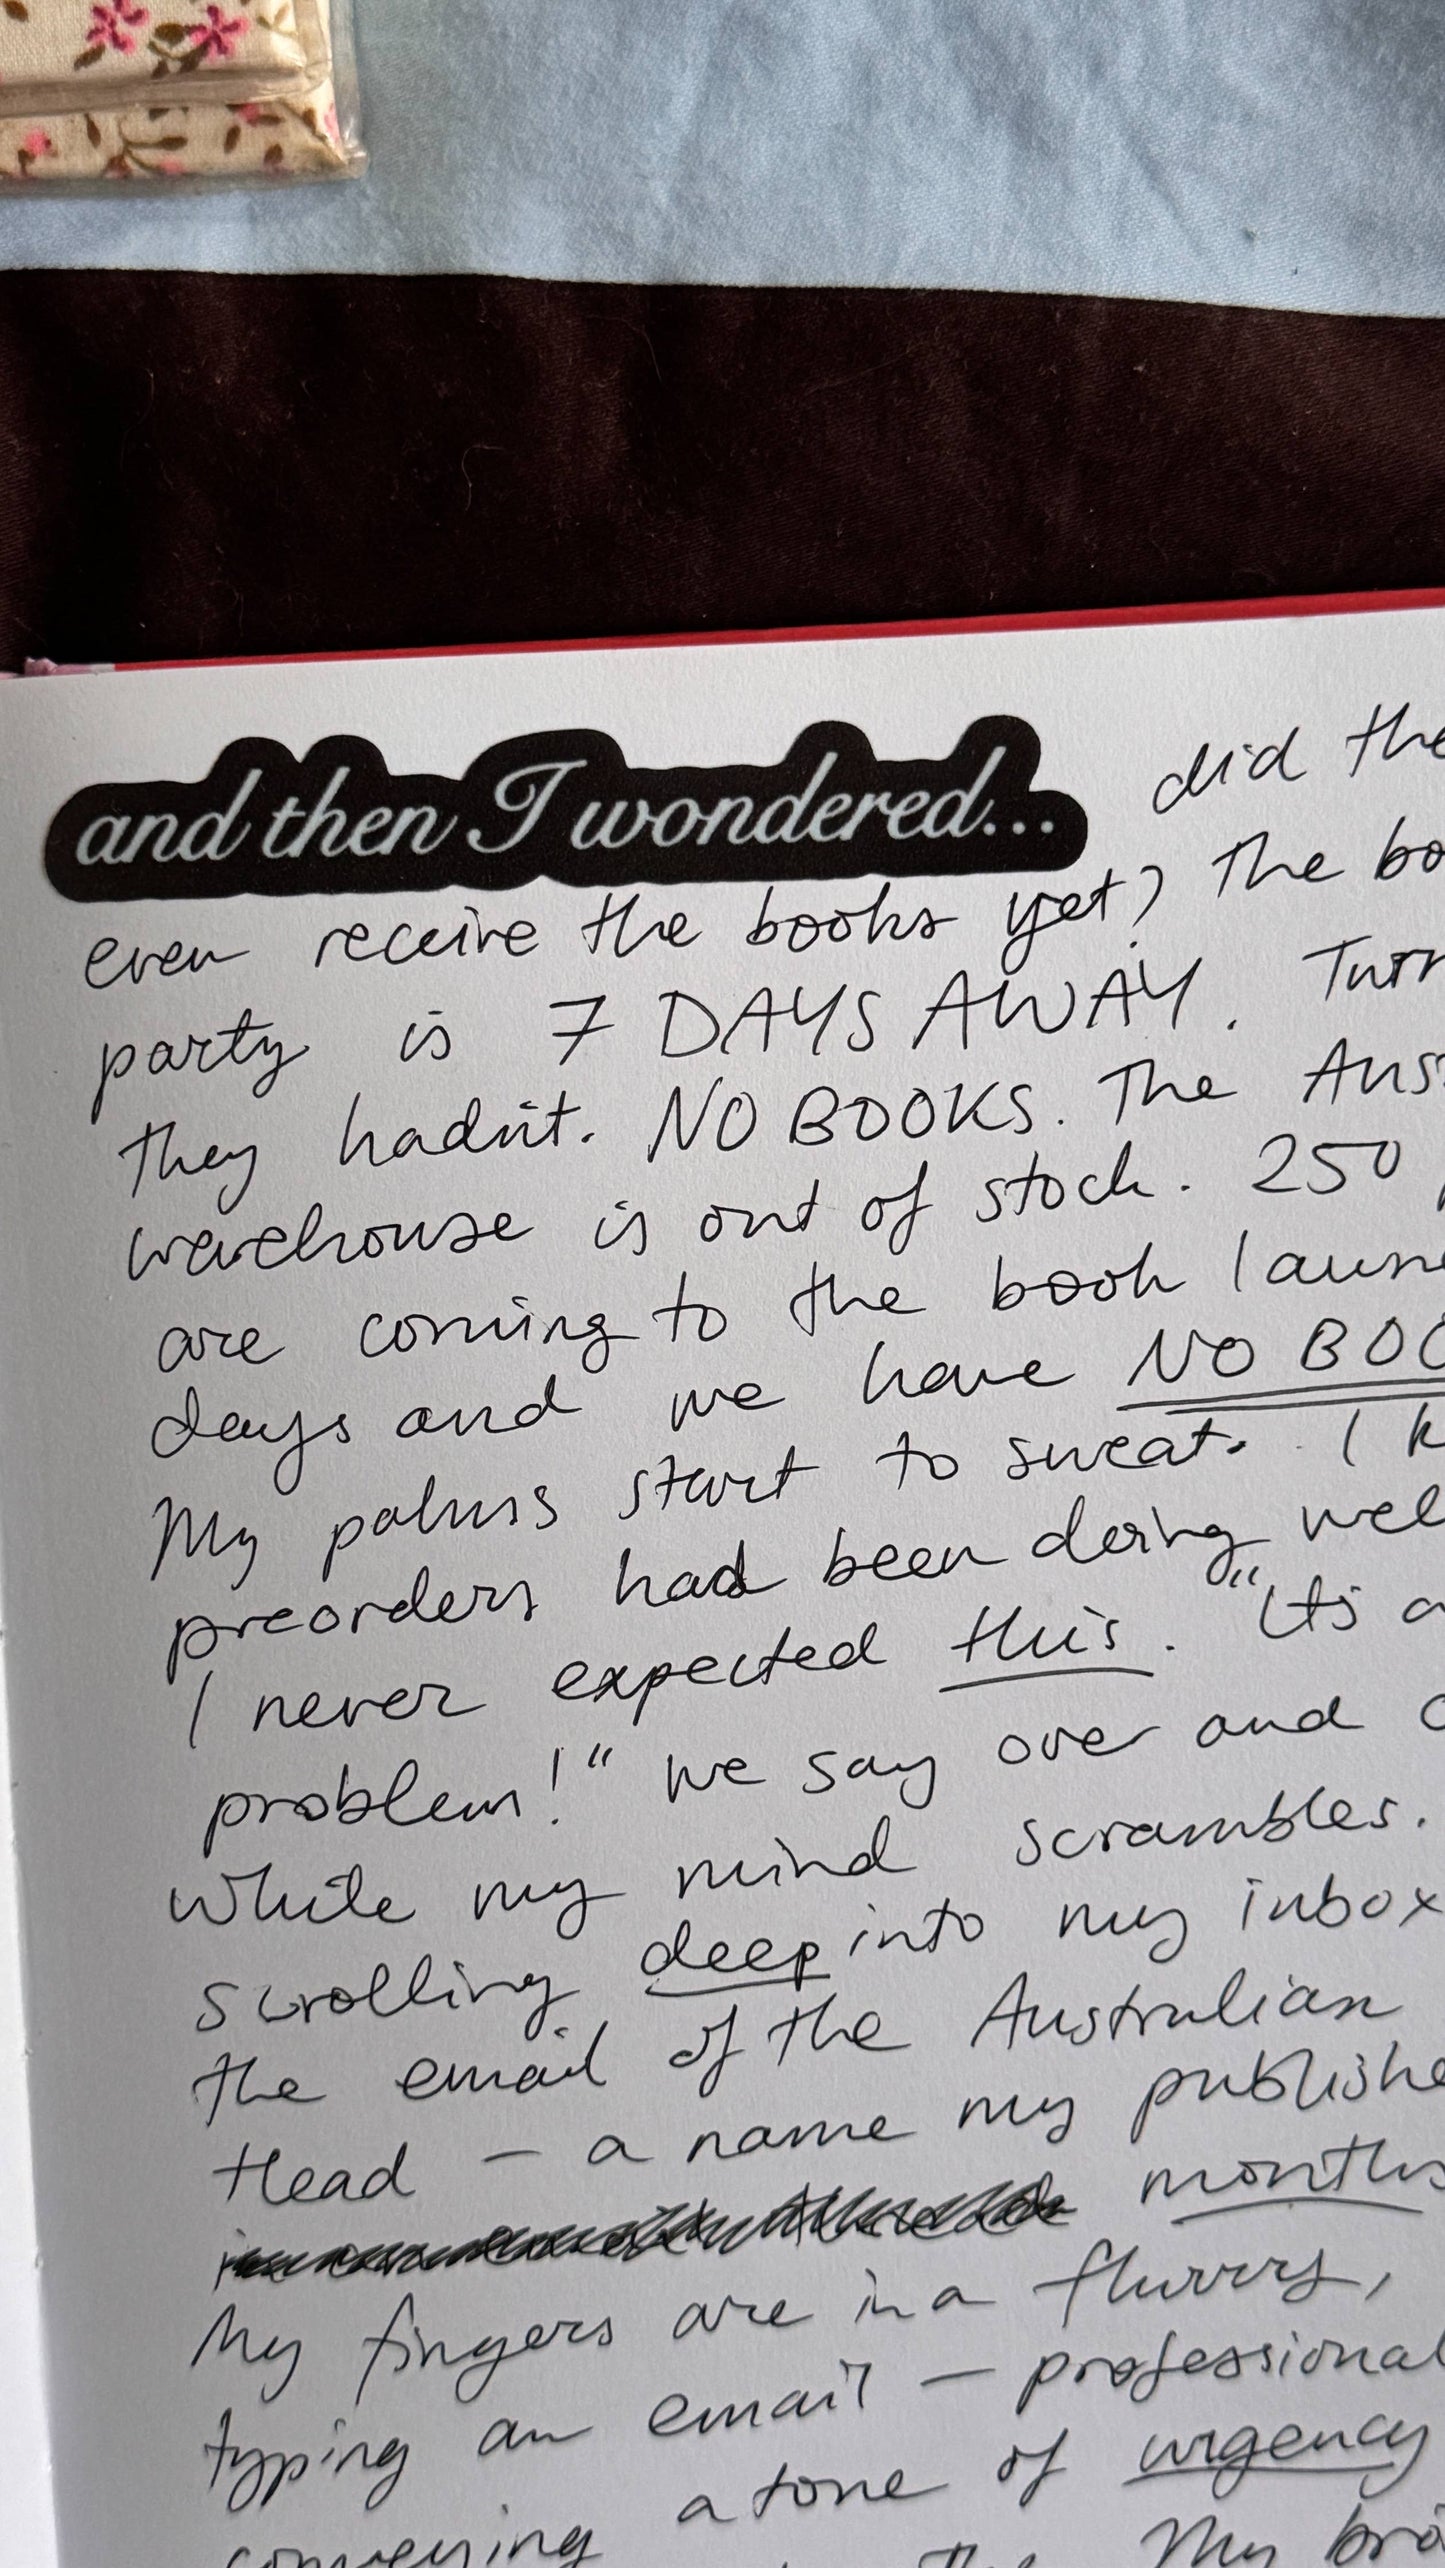 and then I wondered... did the
even receive the books yet? The bo
party is 7 DAYS AWAY. Turn
they hadn't. NO BOOKS. The Aus
warehouse is out of stock. 250
are coming to the book laun
days and we have NO BOO
My palms start to sweat. I k
preorders had been doing wel
I never expected this. "It's a
problem!" we say over and o
while my mind scrambles.
scrolling deep into my inbox
the email of the Australian
Head – a name my publishe
months
My fingers are in a flurry,
typing an email – professional
conveying a tone of urgency
My bra